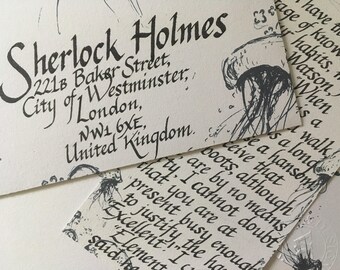 Sherlock Holmes
221B Baker Street,
City of Westminster,
London,
NW1 6XE,
United Kingdom.
I have the
age of know
habits, m
Watson,
When
a walk,
a hansom
boots, although
are by no means
dirty, I cannot doubt
that you are at
present busy enough
to justify the han
"Excellent!" I c
"Elemen
said